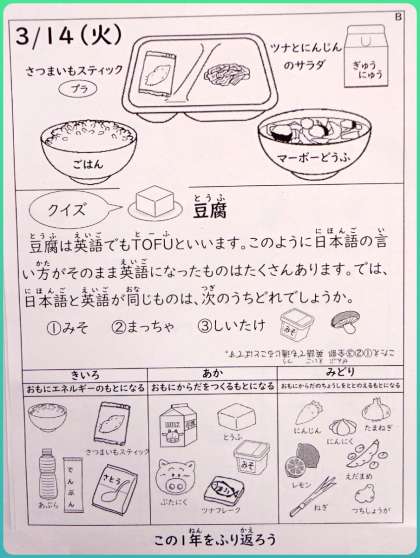 B
3/14(火)
ツナとにんじん
のサラダ
さつまいもスティック
プラ
ぎゅう
にゅう
ごはん
マーボーどうふ
クイズ
とうふ
豆腐
豆腐は英語でもTOFUといいます。このように日本語の言
い方がそのまま英語になったものはたくさんあります。では、
日本語と英語が同じものは、次のうちどれでしょうか。
①みそ ②まっちゃ ③しいたけ
みそ
こたえ①②③全部 英語でも通じることばです。
きいろ
おもにエネルギーのもとになる
あか
おもにからだをつくるもとになる
みどり
おもにからだのちょうしをととのえるもとになる
さつまいもスティック
あぶら
でんぷん
さとう
とうふ
みそ
ぶたにく
ツナフレーク
にんじん
にんにく
たまねぎ
レモン
えだまめ
ねぎ
つちしょうが
この1年をふり返ろう